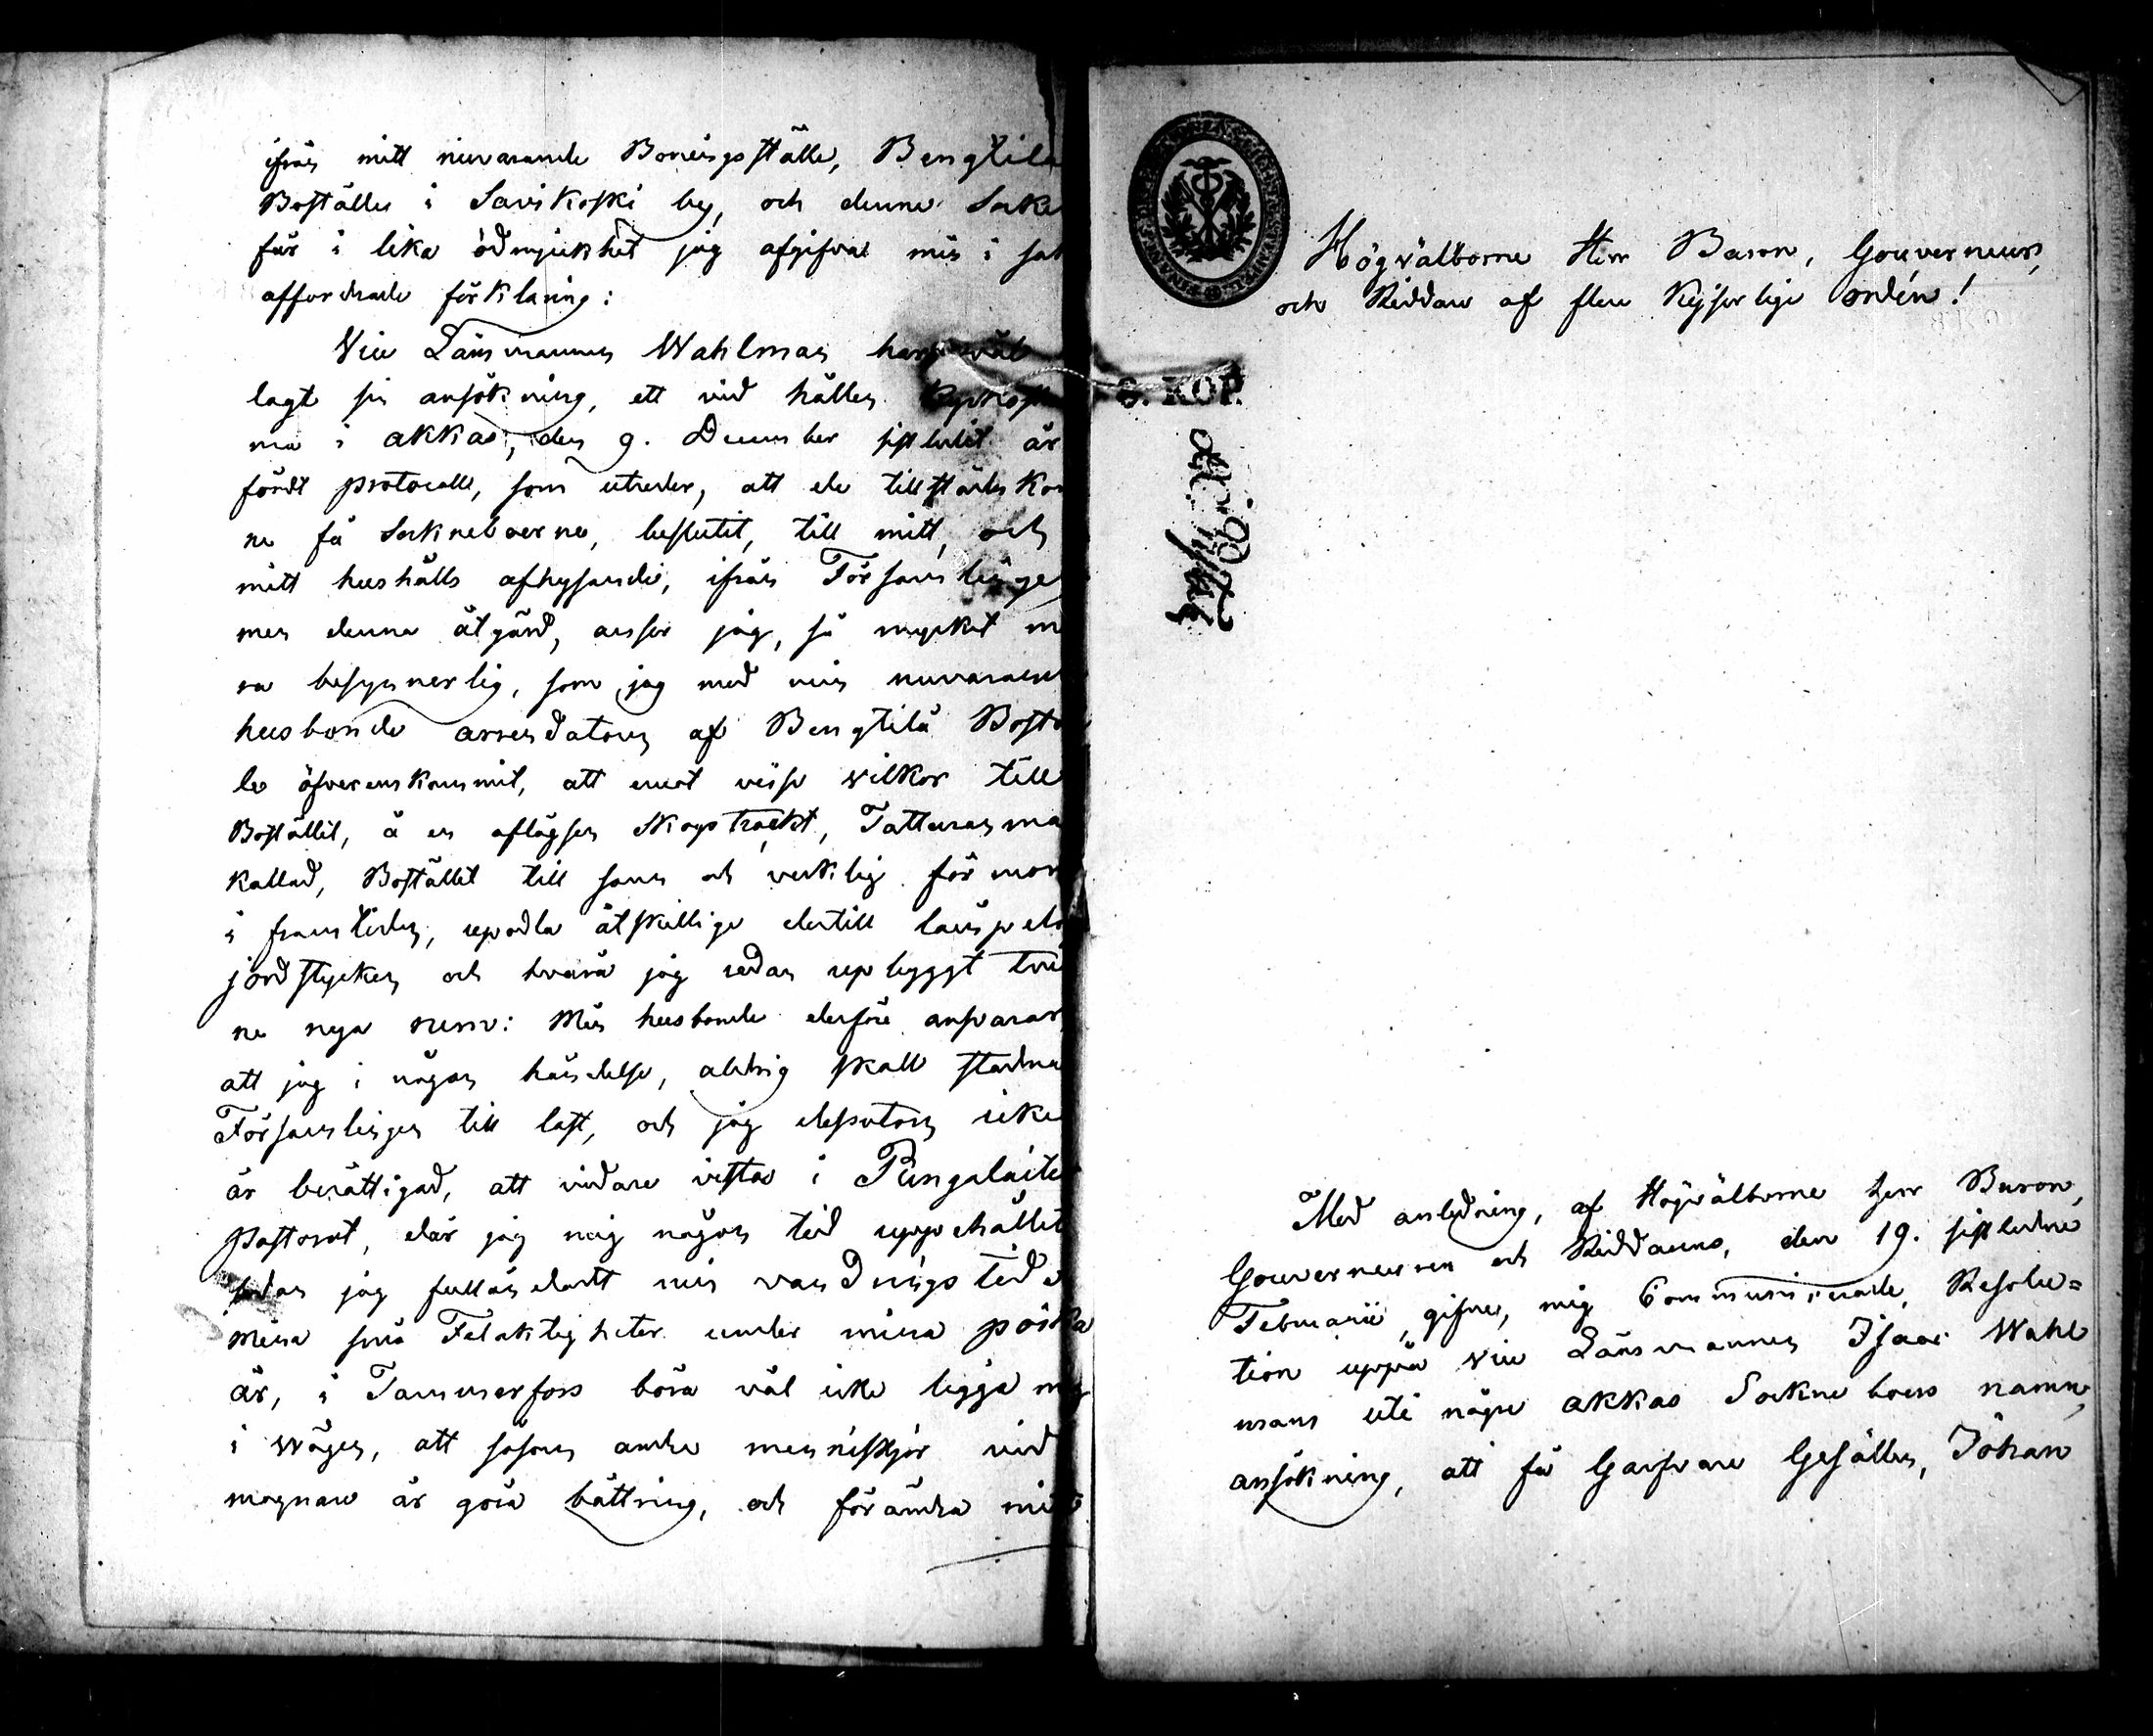 ifrån mitt nuvarande Boningsställe, Bengtilä
Boställe i Saviskoski by, och denne Socke
får i lika ödmjukhet jag afgifva min i sak
affordrade förklaring:
Vice Länsmannen Wahlman har väl
lagt sin ansökning, ett vid hållen
ma i Akkas, den 9. December sistledit år
fördt protocoll, som utreder, att de tillstädes kom
ne få Sockneboerne, beslutit, till mitt, och
mitt hushålls afhysande, ifrån Församlinge
men denna åtgärd, anser jag, så mycket m
ra besynnerlig, som jag med min nuvaran
husbonde arrendatorn af Bengtilä Bostä
le öfverenskommit, att emot visse vilkor till
Boställit, å en aflägsen Skogstrackt, Tatturanma
kallad, Boställit till sann och verklig förmon
i framtiden, upodla åtskillige dertill lämpeli
jordstycken och hvarå jag redan upbyggt tvän
ne nya rum: Min husbonde derföre ansvarar,
att jag i någon händelse, aldrig skall stadna
Församlingen till last, och jag dessutom icke
är berättigad, att vidare vistas i Pungalaitio
Pastorat, där jag mig någon tid uppehållit
sedan jag fulländadt min vandringstid
Mina små Felaktigheter under mina pojka
år, i Tammerfors böra väl icke ligga mig
i vägen, att såsom andre menniskjor vid
mognare år göra bättring, och förändra mitt
Högvälborne Herr Baron, Gouverneur,
och Riddare af flere Kejserlige Orden!
6. KOP.
Med anledning, af Högvälborne Herr Baron,
Gouverneuren och Riddarens, den 19. sistledne
Februarii gifne, mig Communicerade, Resolu=
tion uppå Vice Länsmannen Isaac Wahl
mans uti någre Akkas Sockne boers namn,
ansökning, att få Garfvare Gesällen, Johan